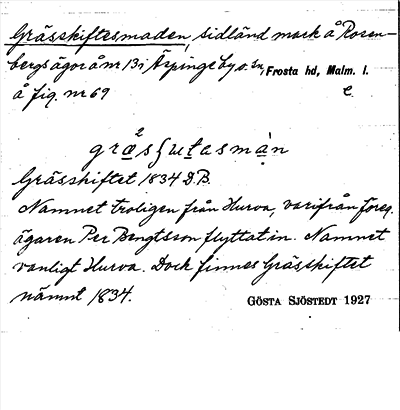 Grässkiftesmaden, sidländ mark å Rosen-
bergs ägor å nr 13 i Arpinge by o. sn, Frosta hd, Malm. l.
å fig. nr 69 e.
Grässkiftet 1834 D.B.
Namnet troligen från Hurva, varifrån föreg.
ägaren Per Bengtsson flyttat in. Namnet
vanligt Hurva. Dock finnes Grässkiftet
nämnt 1834. GÖSTA SJÖSTEDT 1927